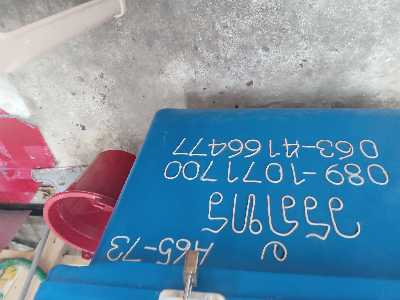 A65-73
วรภัทร
089-1071700
063-4166477